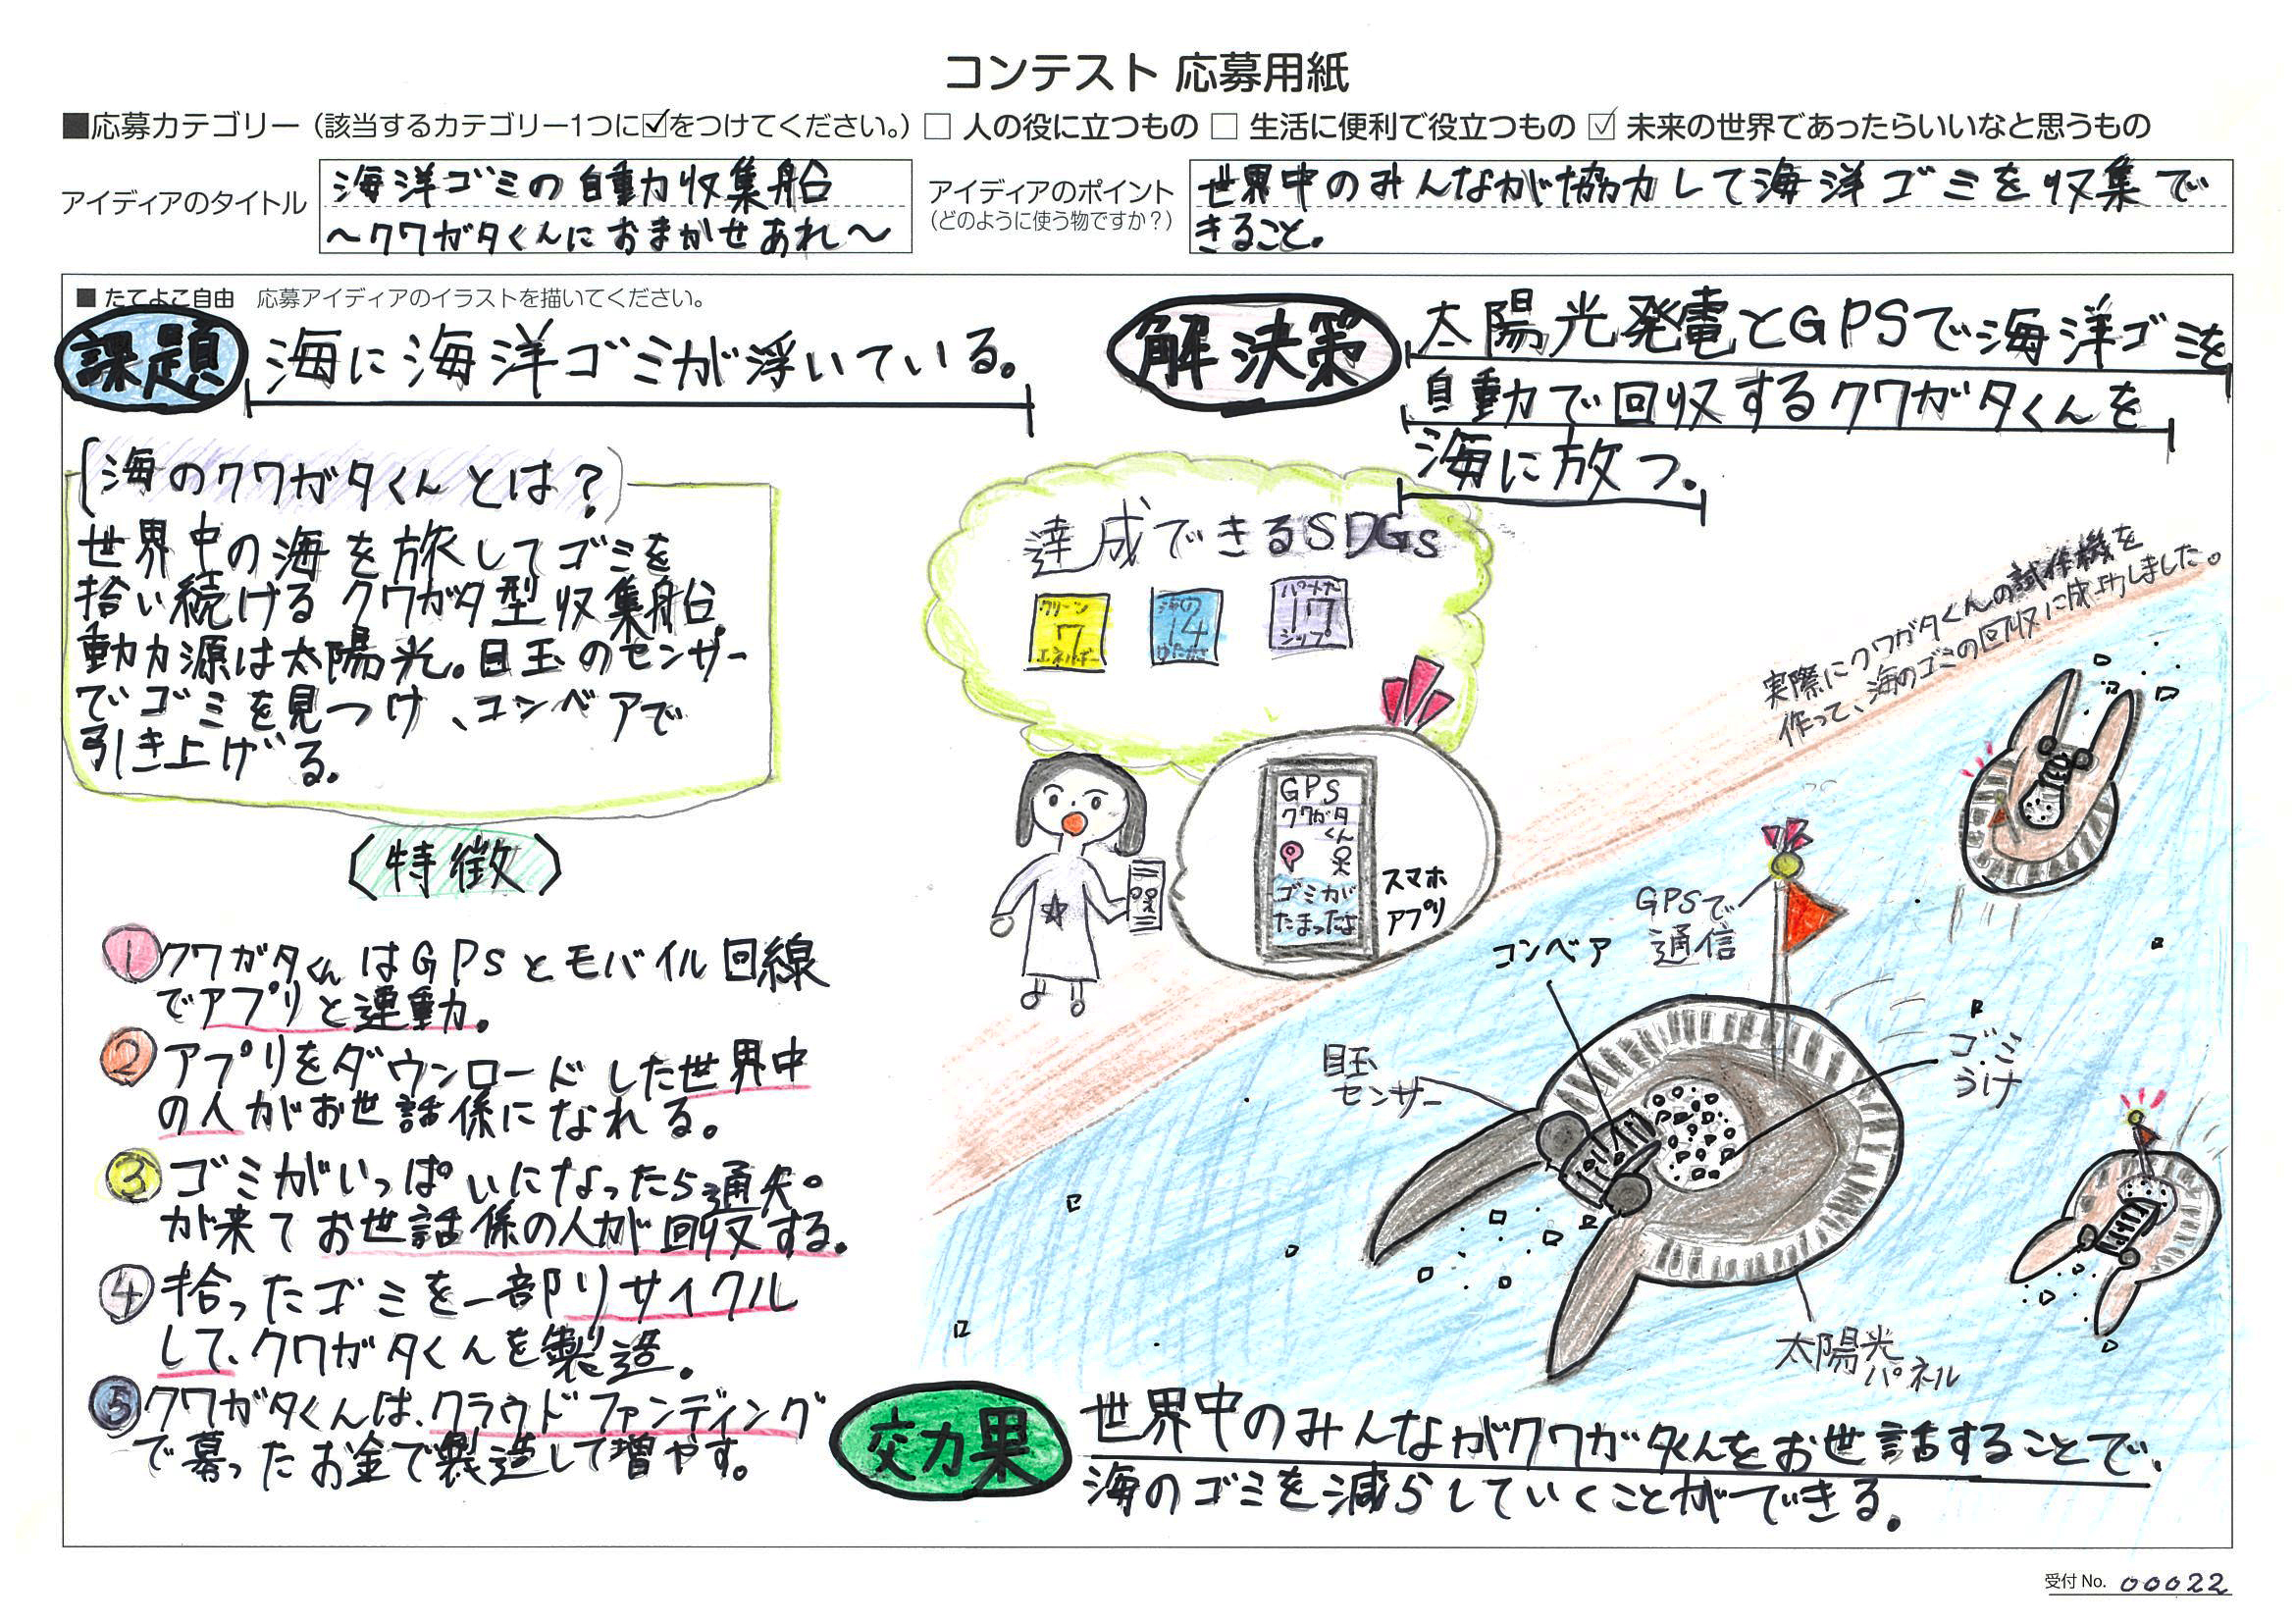 コンテスト 応募用紙
■応募カテゴリー（該当するカテゴリー1つに☑をつけてください。）□ 人の役に立つもの □ 生活に便利で役立つもの ☑ 未来の世界であったらいいなと思うもの
アイディアのタイトル
海洋ゴミの自動収集船
～クワガタくんにおまかせあれ～
アイディアのポイント
（どのように使う物ですか？）
世界中のみんなが協力して海洋ゴミを収集で
きること。
■ たてよこ自由 応募アイディアのイラストを描いてください。
課題
海に海洋ゴミが浮いている。
解決策
太陽光発電とGPSで海洋ゴミを
自動で回収するクワガタくんを
海に放つ。
海のクワガタくんとは？
世界中の海を旅してゴミを
拾い続けるクワガタ型収集船。
動力源は太陽光。目玉のセンサー
でゴミを見つけ、コンベアで
引き上げる。
達成できるSDGs
クリーン
7
エネルギー
海の
14
ゆたかさ
パートナー
17
シップ
実際にクワガタくんの試作機を
作って、海のゴミの回収に成功しました。
GPS
クワガタ
くん
ゴミが
たまったよ
スマホ
アプリ
(特徴)
① クワガタくんはGPSとモバイル回線
でアプリと連動。
② アプリをダウンロードした世界中
の人がお世話係になれる。
③ ゴミがいっぱいになったら通知。
が来てお世話係の人が回収する。
④ 拾ったゴミを一部リサイクル
して、クワガタくんを製造。
⑤ クワガタくんは、クラウドファンディング
で募ったお金で製造して増やす。
GPSで
通信
コンベア
目玉
センサー
ゴミ
うけ
太陽光
パネル
効果
世界中のみんながクワガタくんをお世話することで、
海のゴミを減らしていくことができる。
受付 No. 00022